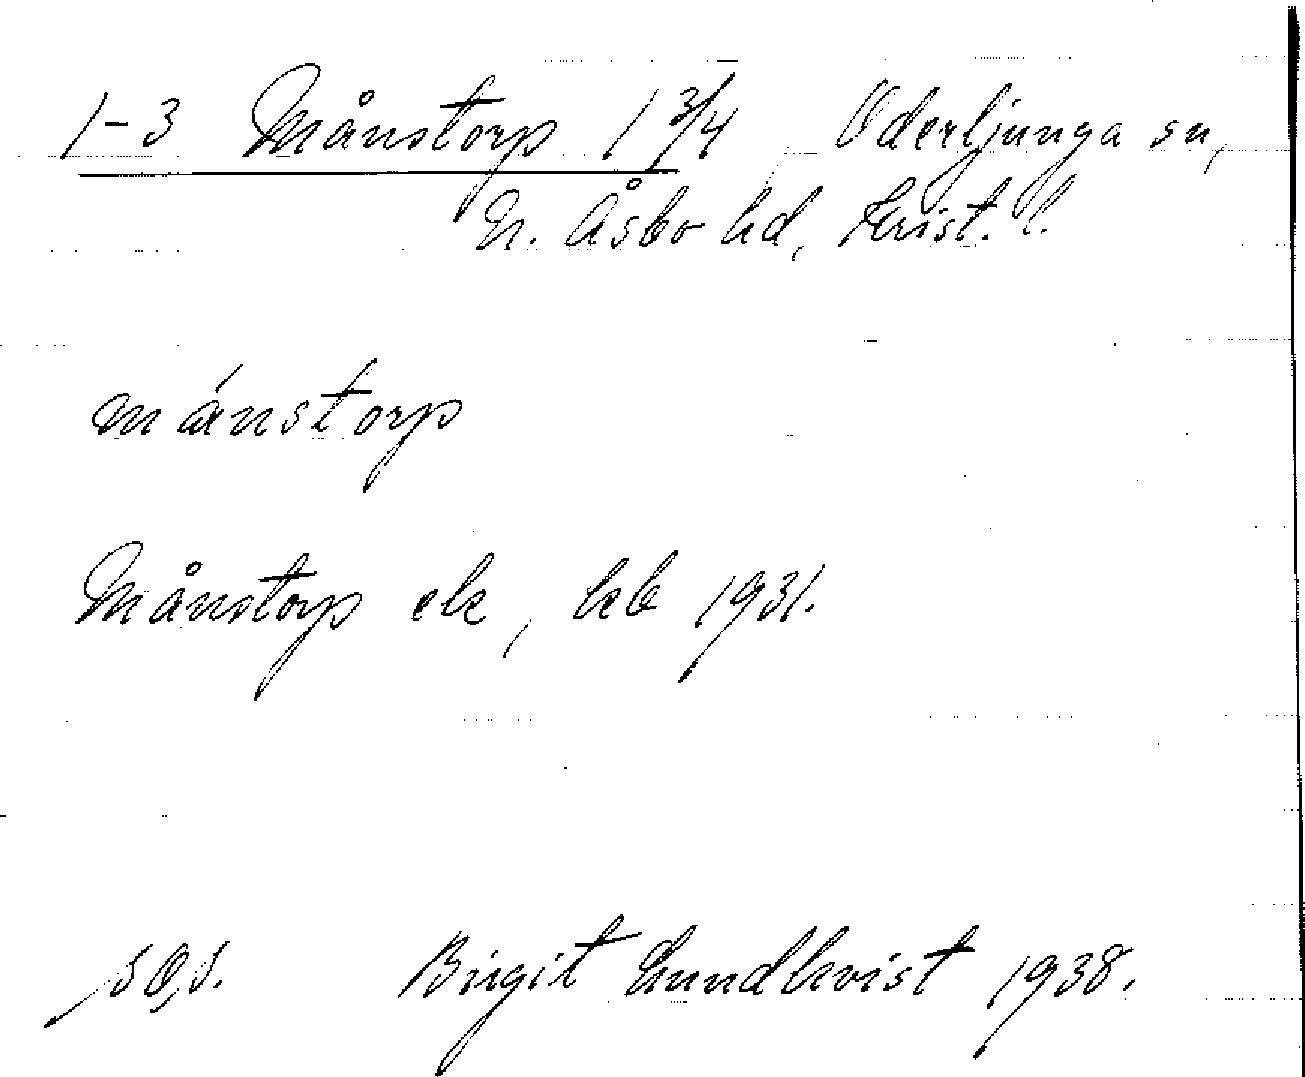 1-3 Månstorp 1 3/4 Oderljunga sn,
N. Åsbo hd, Krist. l.
månstorp
Månstorp ek, kb 1931.
Birgit Lundkvist 1938.